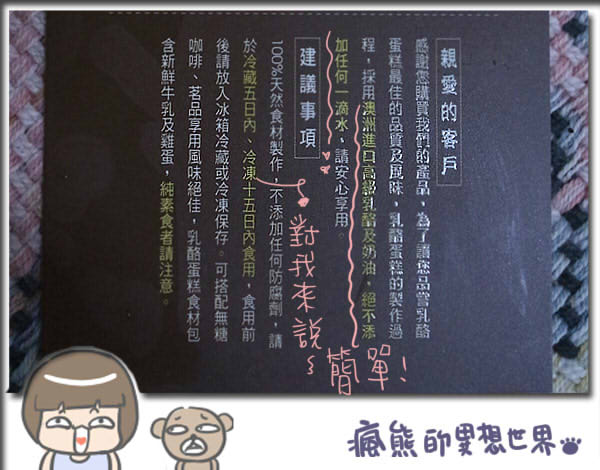 親愛的客戶
感謝您購買我們的產品，為了讓您品嘗乳酪
蛋糕最佳的品質及風味，乳酪蛋糕的製作過
程，採用澳洲進口高級乳酪及奶油，絕不添
加任何一滴水、請安心享用。
建議事項
100%天然食材製作，不添加任何防腐劑，請
於冷藏五日內、冷凍十五日內食用，食用前
後請放入冰箱冷藏或冷凍保存。可搭配無糖
咖啡、茗品享用風味絕佳，乳酪蛋糕食材包
含新鮮牛乳及雞蛋，純素食者請注意。
對我來說~
簡單！
瘋熊的異想世界